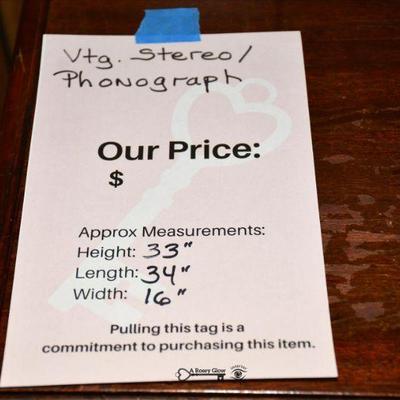 Vtg. Stereo/
Phonograph
Our Price:
$
Approx Measurements:
Height: 33"
Length: 34"
Width: 16"
Pulling this tag is a
commitment to purchasing this item.
A Rosey Glow